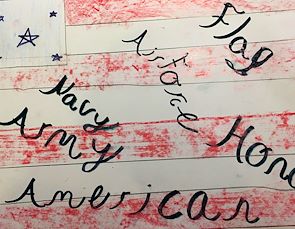 Flag
Air Force
Navy
Army
Hono
American